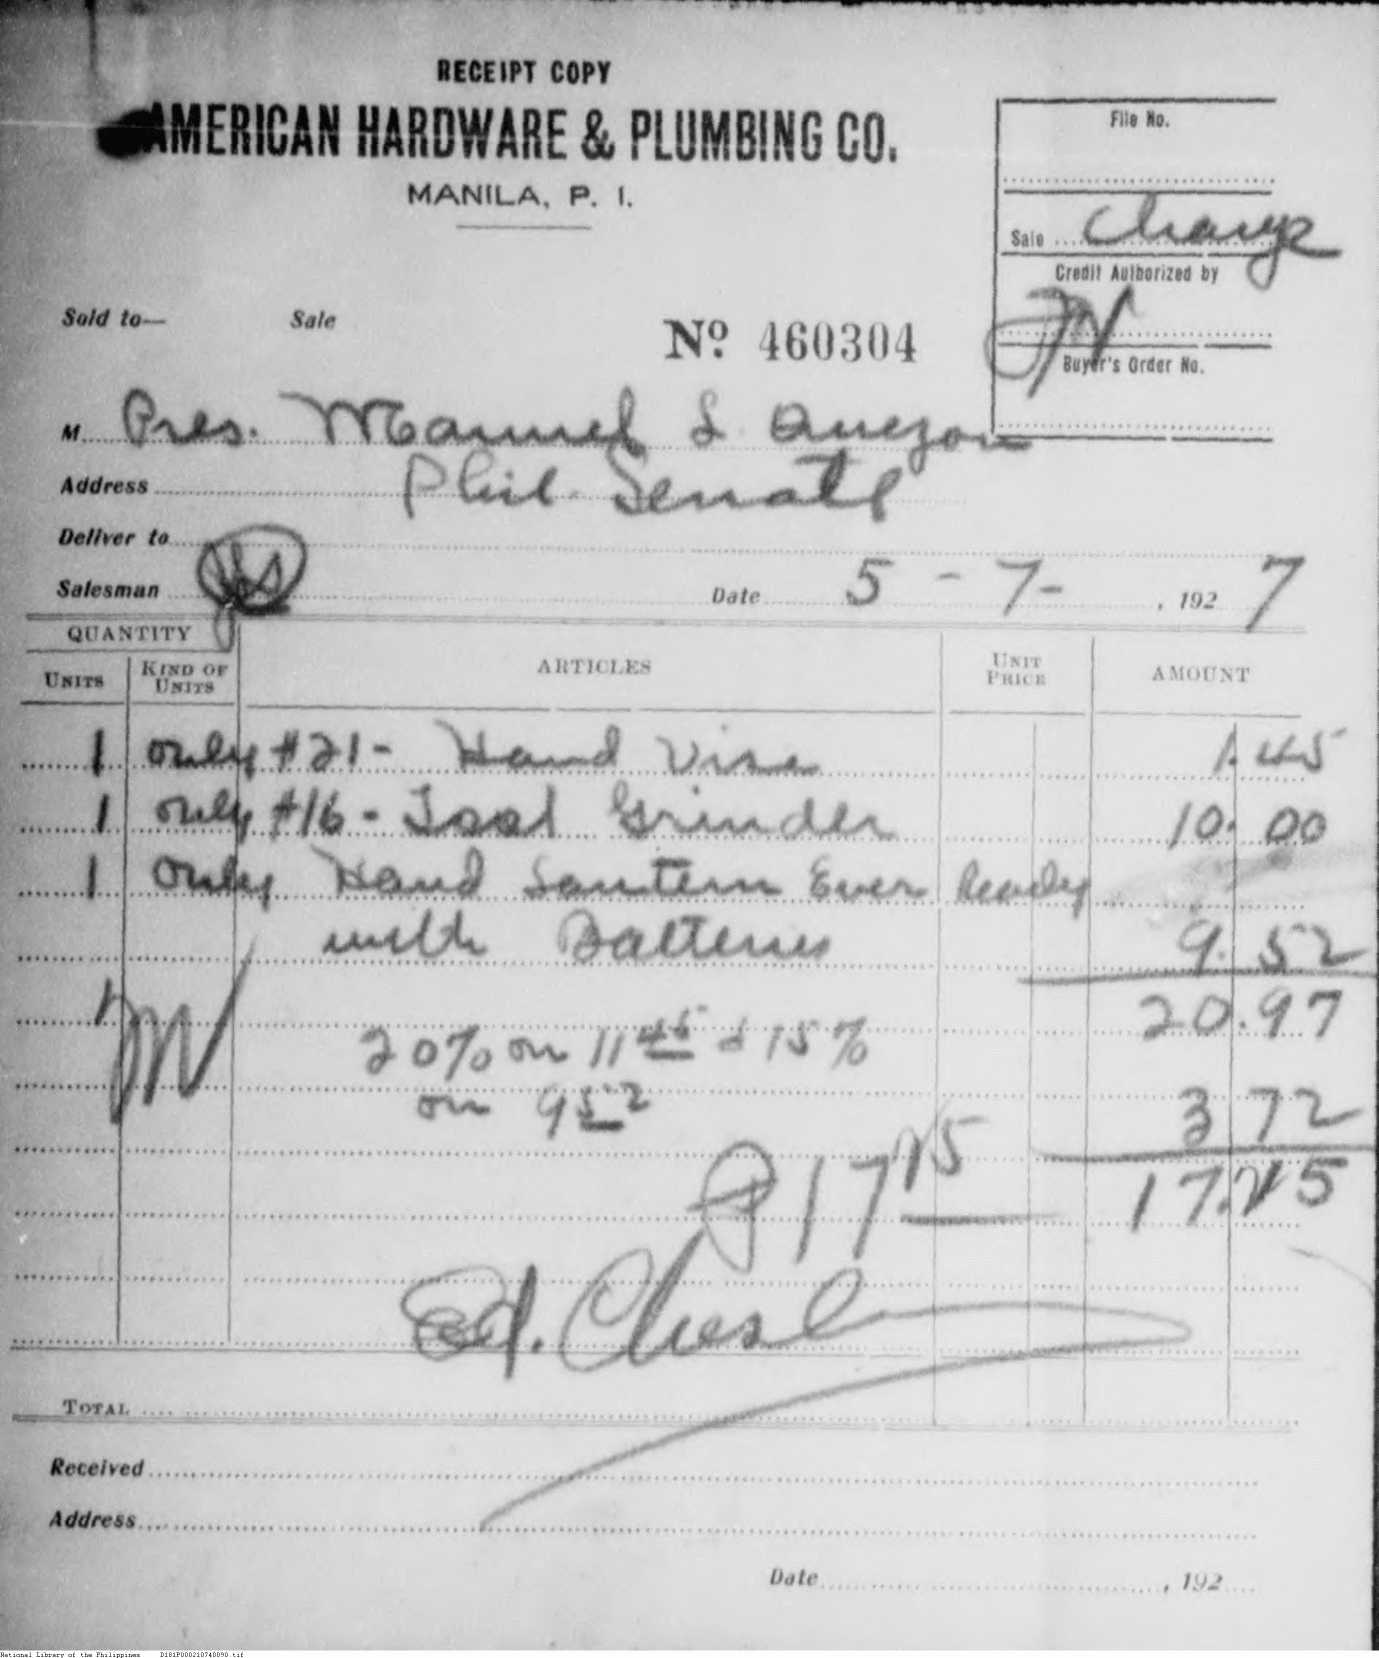 RECEIPT COPY
AMERICAN HARDWARE & PLUMBING CO.
MANILA, P. I.
File No.
Sale Charge
Credit Authorized by
Buyer's Order No.
Sold to— Sale
Nº 460304
M Pres. Manuel L Quezon
Address Phil. Senate
Deliver to
Salesman
Date 5-7-, 1927
QUANTITY
UNITS KIND OF UNITS ARTICLES UNIT PRICE AMOUNT
1 only #21- Hand Vise 1.45
1 only #16 - Tool Grinder 10.00
1 only Hand Lantern Ever Ready
with Batteries 9.52
20.97
20% on 11 45 & 15%
on 9 52 3 72
₱17 25 17.25
Ed. Chesl
TOTAL
Received
Address
Date , 192
National Library of the Philippines D181P000210740090.tif